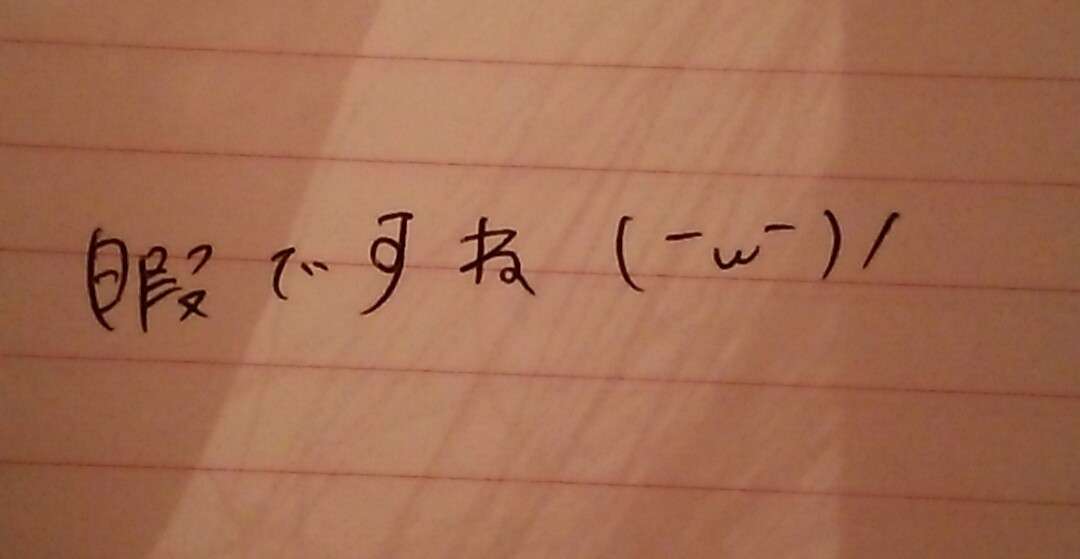 暇ですね (-ω-)/